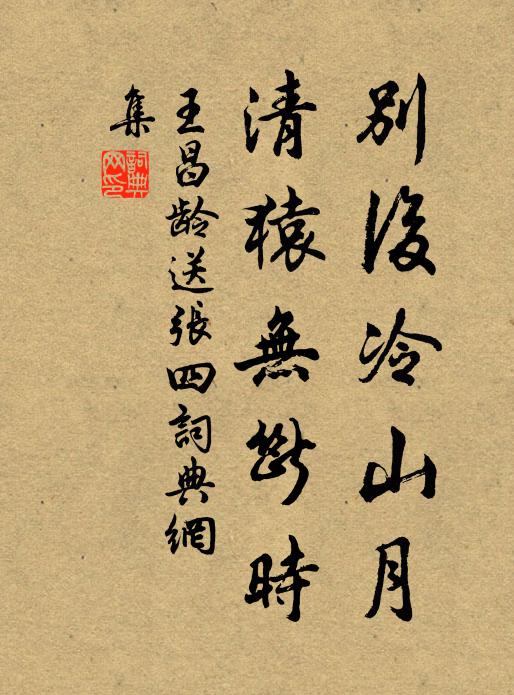 別後冷山月
清猿無斷時
王昌齡送張四詞典網
集
詞典
网印